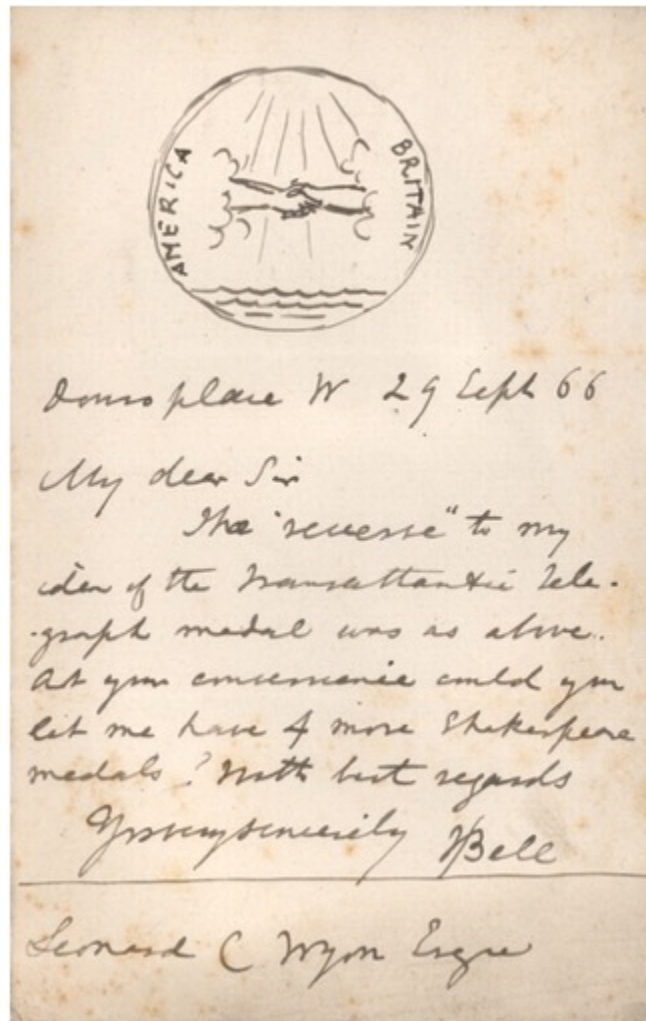 AMERICA
BRITAIN
Douro place W 29 Sept 66
My dear Sir
The "reverse" to my
idea of the Transatlantic Tele-
-graph medal was as above.
At your convenience could you
let me have 4 more Shakespeare
medals? With best regards
Yrs very sincerely JBell
Leonard C Wyon Esqre